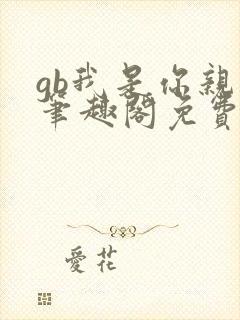 gb我是你親
筆趣閣免費
愛花